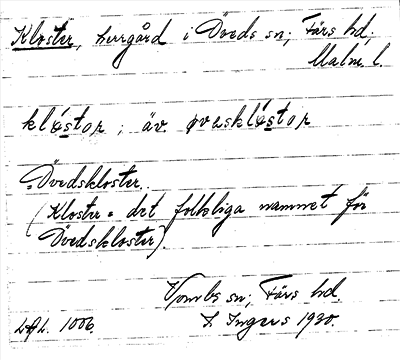 Kloster, herrgård i Öveds sn; Färs hd;
Malm. l.
klóstəɹ; äv. øvəskló​stəɹ
Övedskloster.
(Kloster = det folkliga namnet för
Övedskloster).
Vombs sn; Färs hd.
LAL. 1006. I Ingers 1930.